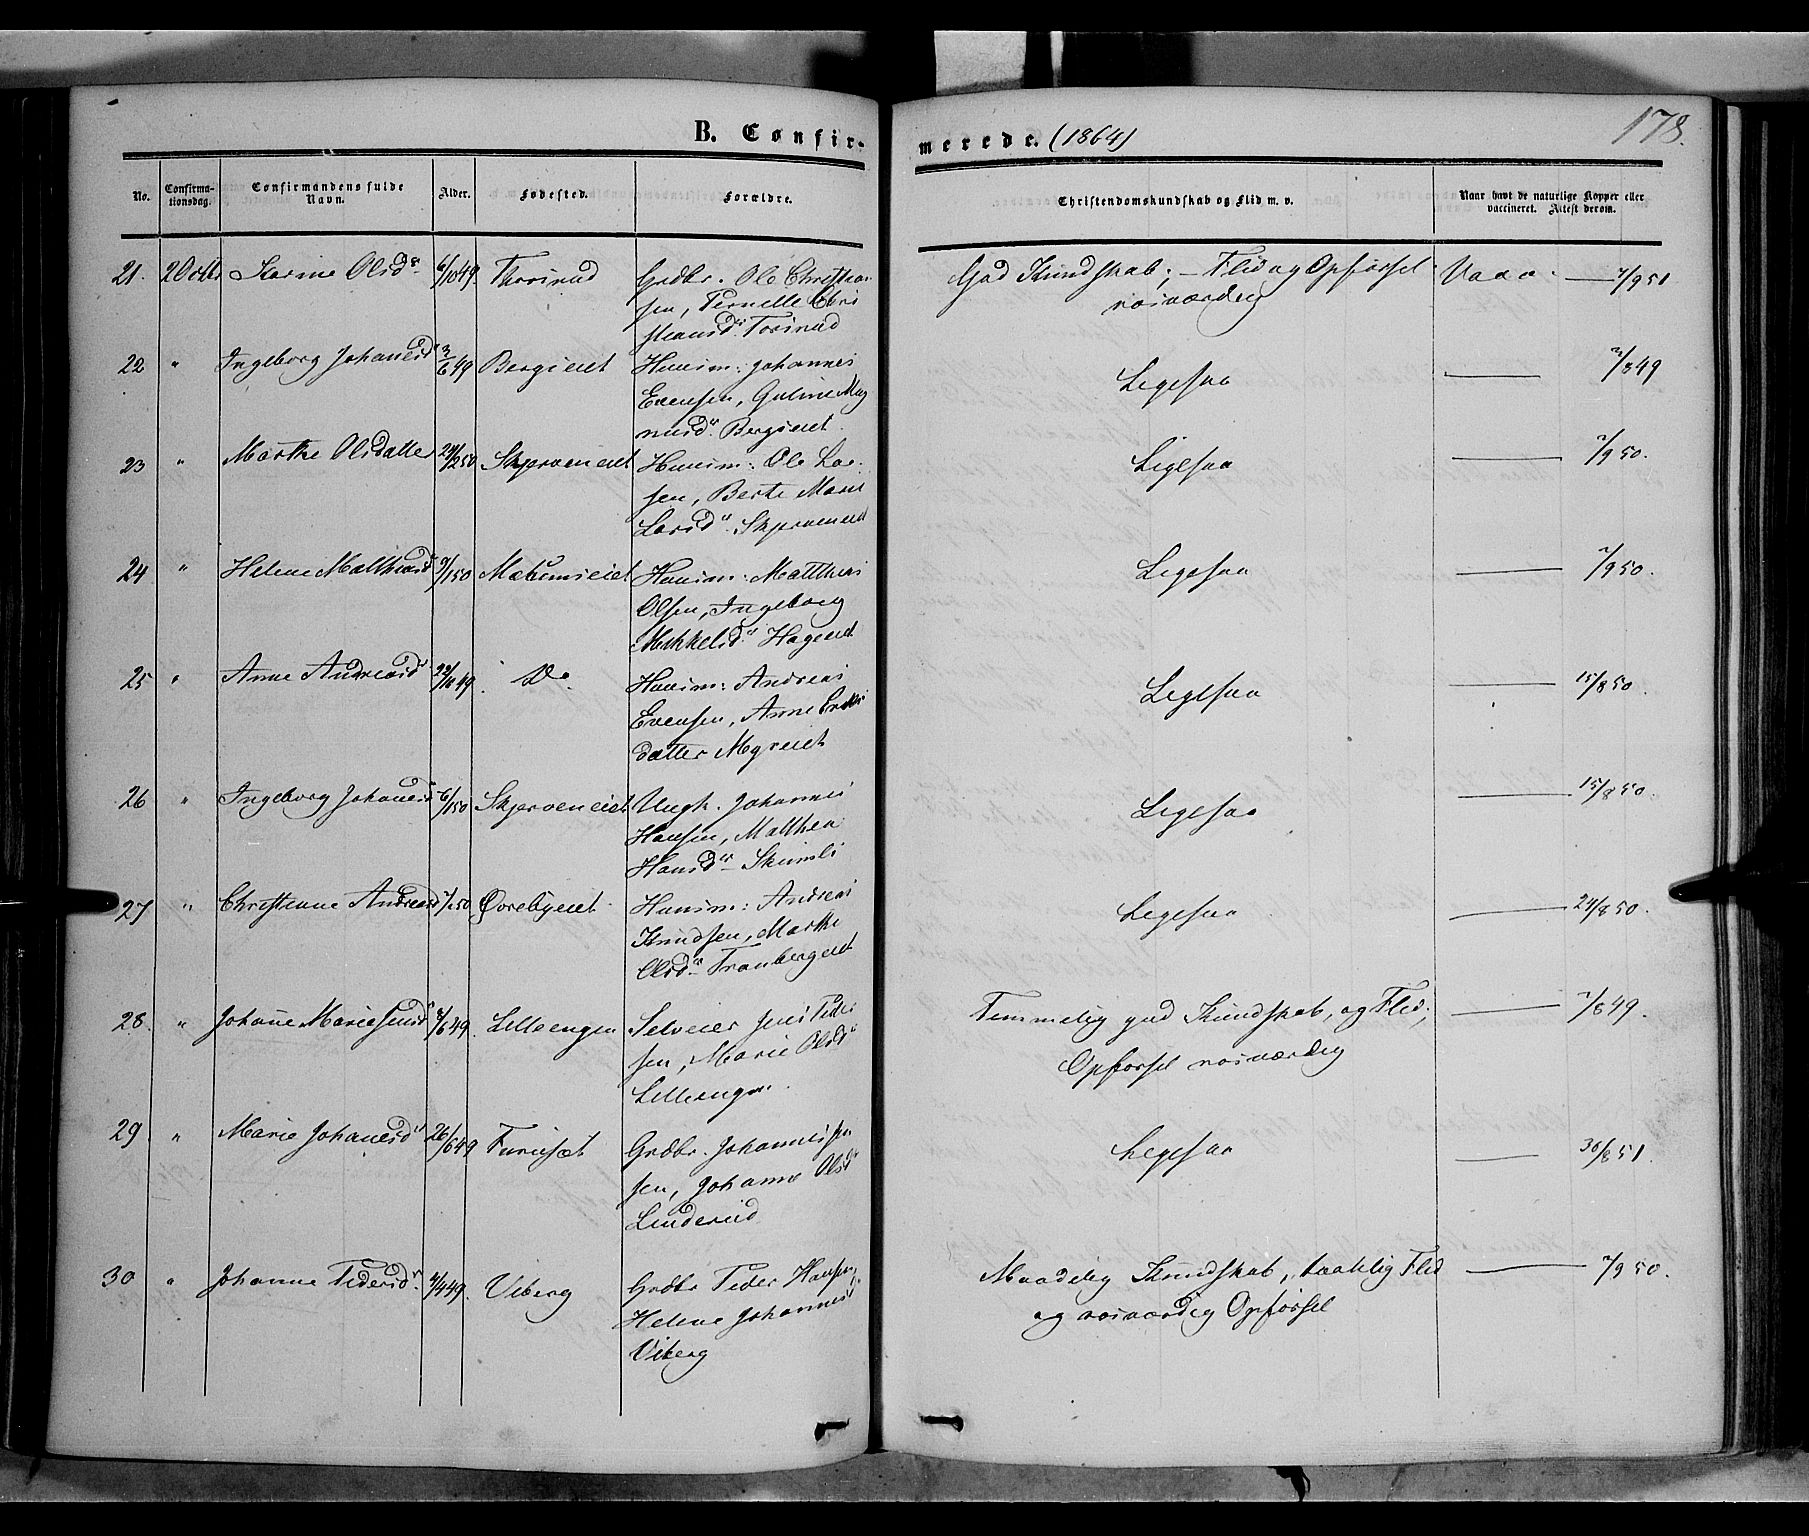 B. Confir-
merede. (1864)
178.
No.
Confirma-
tionsdag.
Confirmandens fulde
Navn.
Alder.
Fødested.
Forældre.
Christendomskundskab og Flid m. v.
Naar havt de naturlige Kopper eller
vaccineret. Attest derom.
21. 2 Octbr Karine Olsdr 6/10 49 Thorsrud Grdbr. Ole Christian
sen, Pernelle Chri
stiansdr Torsrud
God Kundskab; – Flid og Opførsel
rosværdig
Vacc. — 7/9 51
22 " Ingeborg Johanesdr 3/6 49 Bergseiet Huusm: Johannes
Evensen, Guline Mag
nusdr Bergseiet.
Ligesaa — 7/8 49
23 " Marthe Olsdatter 24/2 50 Skjerveneiet Huusm: Ole Lar-
sen, Berte Marie
Larsdr Skjerveneiet
Ligesaa — 7/9 50.
24 " Helene Mathiasdr 9/1 50 Mæhumseiet Huusm: Matthias
Olsen, Ingeborg
Mikkelsdr Hageeiet
Ligesaa — 7/9 50.
25 " Anne Andreasdr 29/10 49. Do Huusm: Andreas
Evensen, Anne Eriks
datter Myreiet
Ligesaa — 15/8 50.
26 " Ingeborg Johanesdr 6/1 50 Skjerveneiet Ungk. Johannes
Hansen, Mathea
Hansdr Skumli
Ligesaa — 15/8 50.
27 " Christiane Andreasd 7/1 50 Øvrebyeiet Huusm: Andreas
Knudsen, Marthe
Olsdr Tranbergeiet
Ligesaa — 24/8 50.
28. " Johane Marie Jensdr 8/6 49. Lilleengen Selveier Jens Peder
sen, Marie Olsdr
Lilleengen.
Temmelig god Kundskab, og Flid;
Opførsel rosværdig
— 7/8 49.
29 " Marie Johanesdr 26/6 49 Furuset Grdbr. Johannes Jen
sen, Johanne Olsdr
Linderud
Ligesaa — 30/8 51.
30 " Johanne Pedersdr 4/4 49. Viberg Grdbr Peder Hansen,
Helene Johannesd
Viberg
Maadelig Kundskab, taalelig Flid
og rosværdig Opførsel
— 7/9 50.